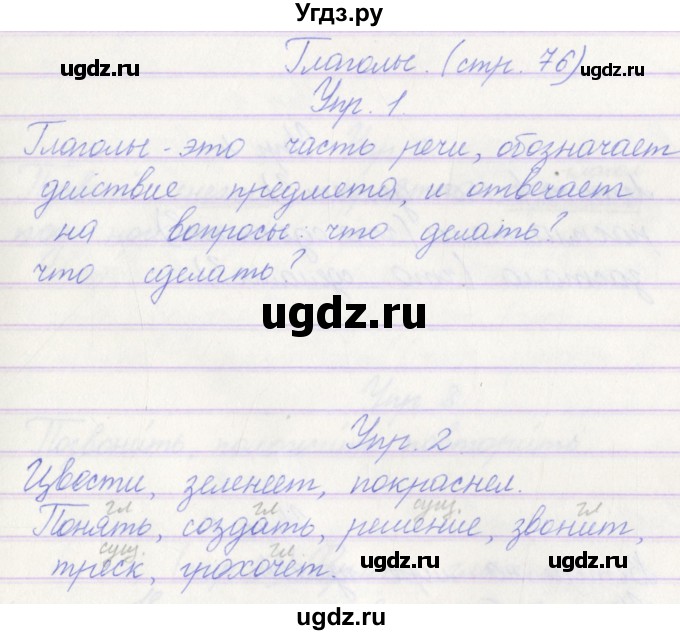 Угдз.ру
ugdz.ru ugdz.ru
Глаголы. (стр. 76)
Упр. 1.
Глаголы - это часть речи, обозначает
действие предмета, и отвечает
на вопросы: что делать?
что сделать?
ugdz.ru
Упр. 2
Цвести, зеленеет, покраснел.
гл гл сущ. гл
Понять, создать, решение, звонит,
сущ. гл.
треск, грохочет.
ugdz.ru ugdz.ru
ugdz.ru